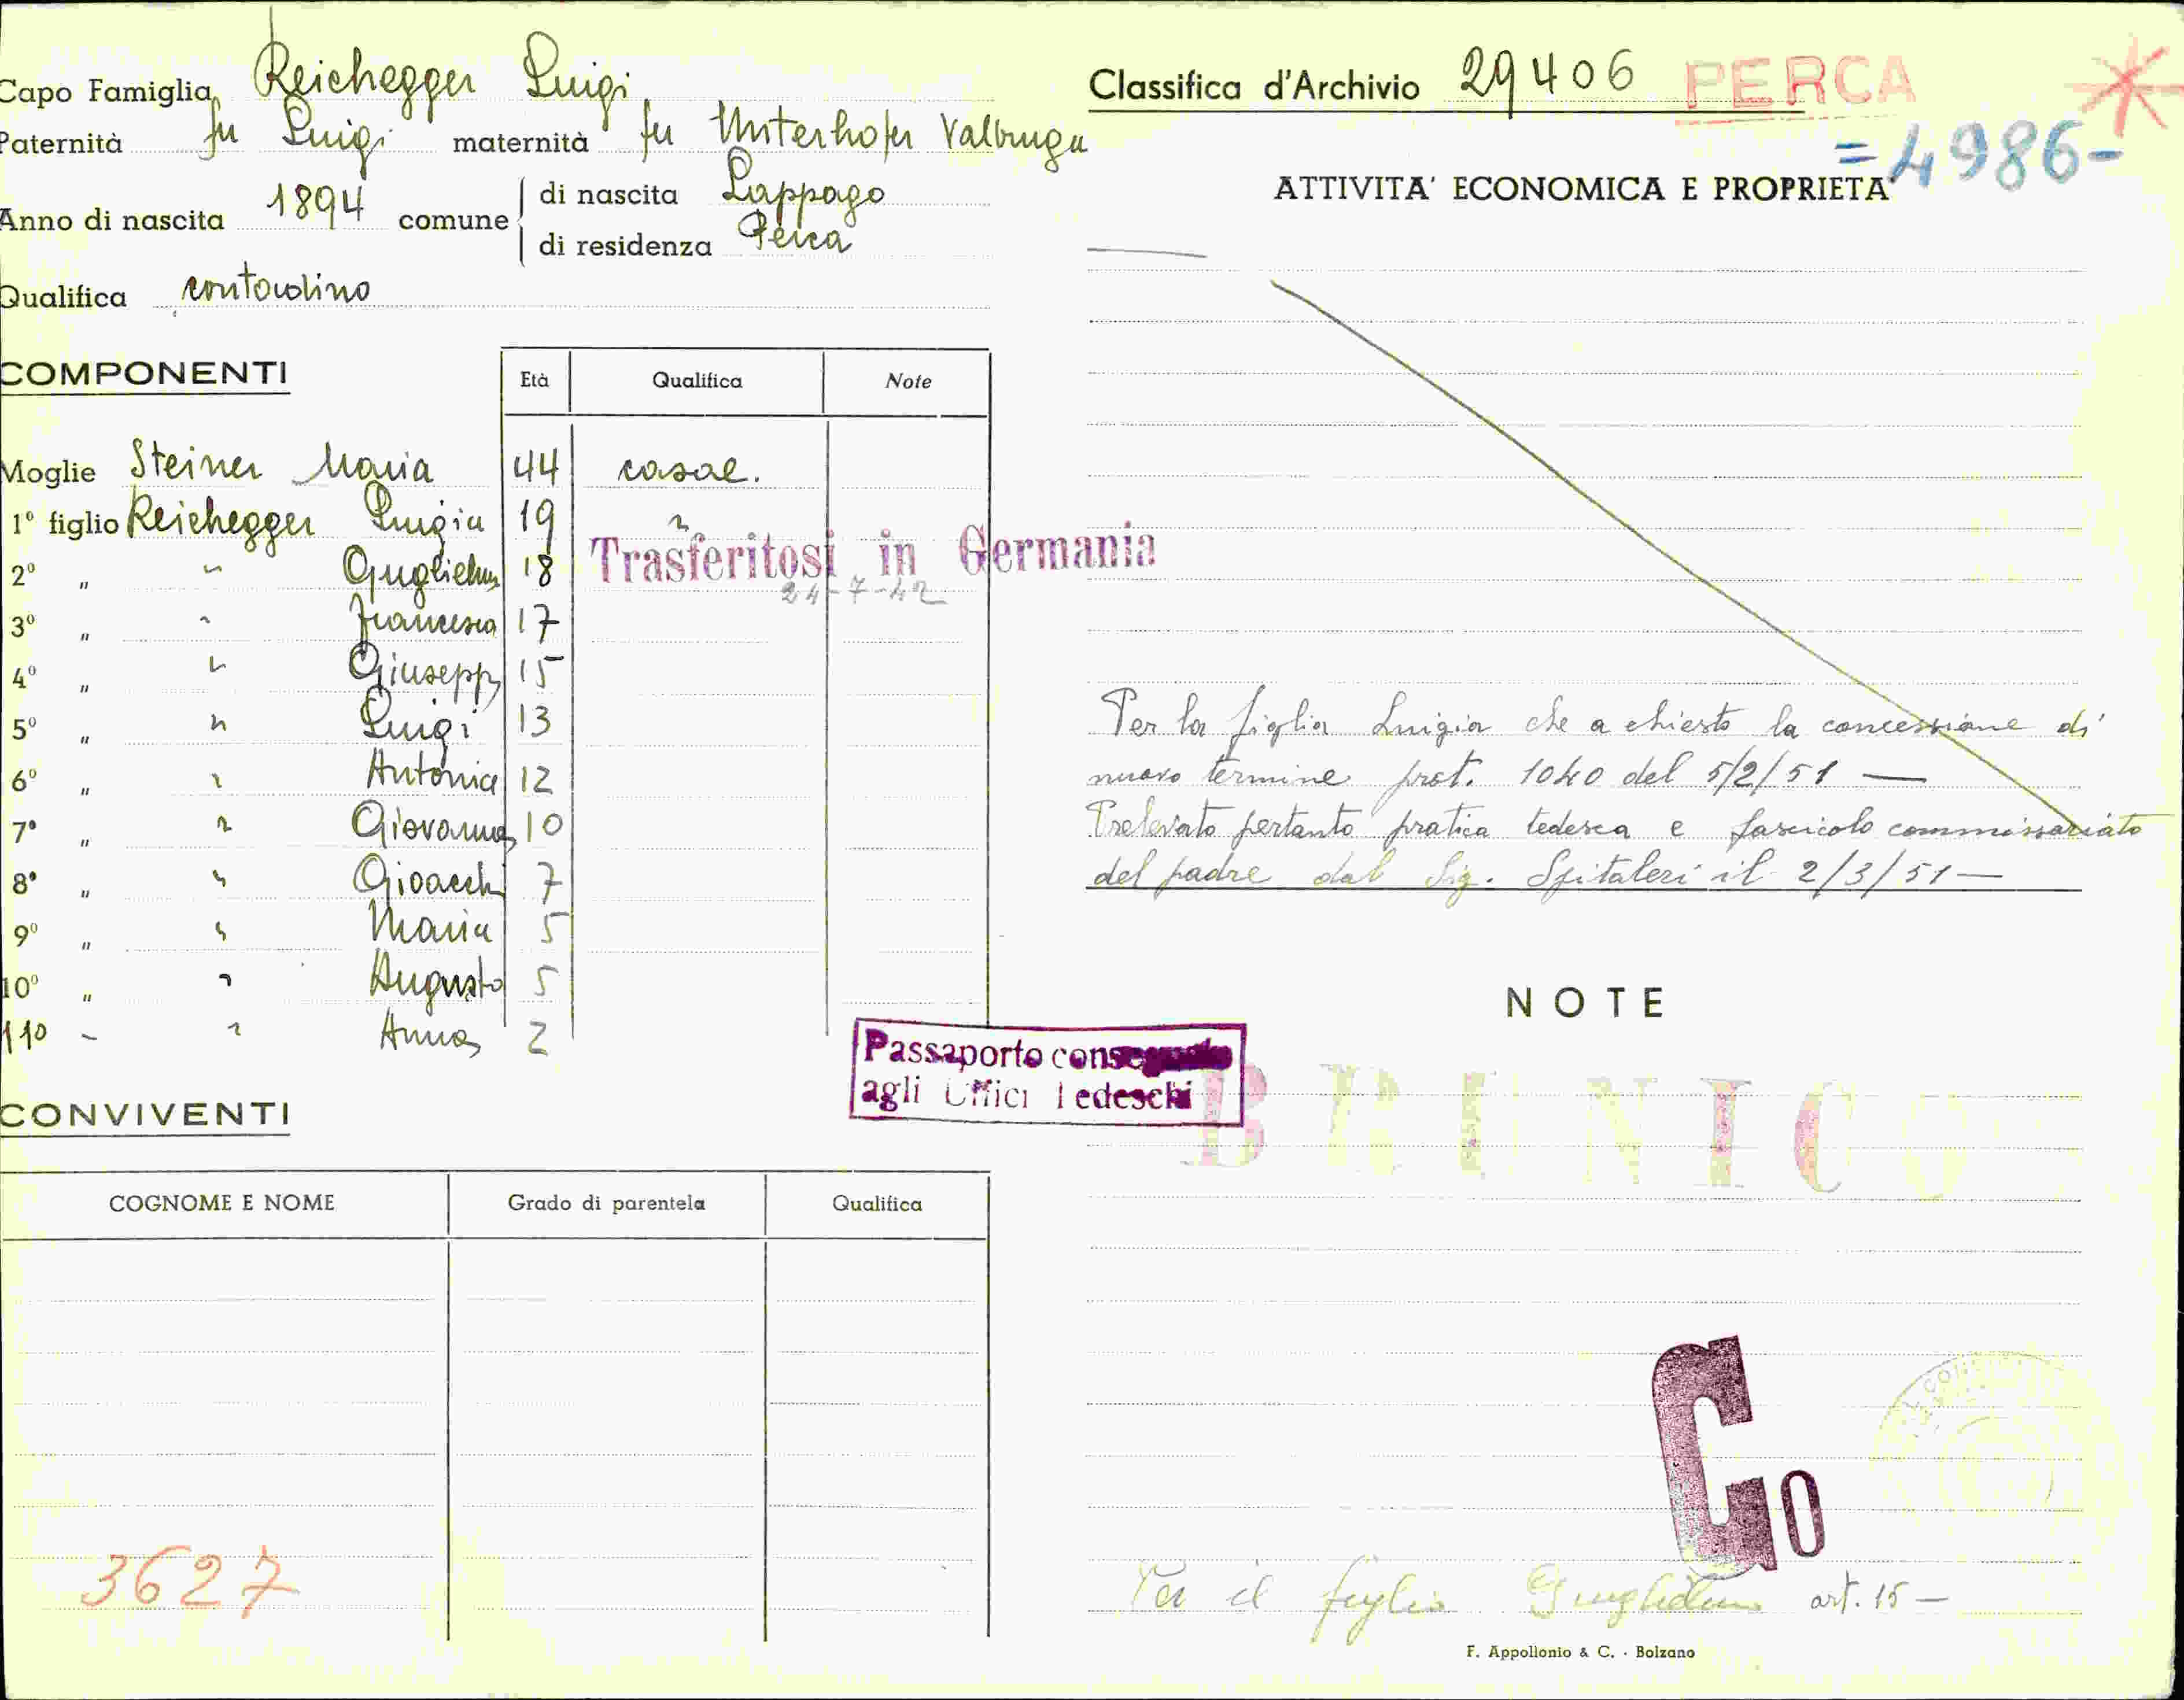 Capo Famiglia Reichegger Luigi
Paternità fu Luigi maternità fu Unterhofer Valburga
Anno di nascita 1894 comune di nascita Lappago
di residenza Perca
Qualifica contadino
COMPONENTI Età Qualifica Note
Moglie Steiner Maria 44 casal.
1º figlio Reichegger Luigia 19 "
2º " " Guglielmo 18 Trasferitosi in Germania
24-7-42
3º " " Francesco 17
4º " " Giuseppe 15
5º " " Luigi 13
6º " " Antonia 12
7º " " Giovanna 10
8º " " Gioacch 7
9º " " Maria 5
10º " " Augusto 5
11º - " Anna 2
Passaporto consegnato
agli Uffici Tedeschi
CONVIVENTI
COGNOME E NOME Grado di parentela Qualifica
3627
Classifica d'Archivio 29406 PERCA
=4986-
ATTIVITA' ECONOMICA E PROPRIETA'
Per la figlia Luigia che a chiesto la concessione di
nuovo termine prot. 1040 del 5/2/51 —
Prelevato pertanto pratica tedesca e fascicolo commissariato
del padre dal Sig. Spitaleri il 2/3/51 —
NOTE
BRUNICO
Co
Per il figlio Guglielmo art. 15 —
F. Appollonio & C. - Bolzano